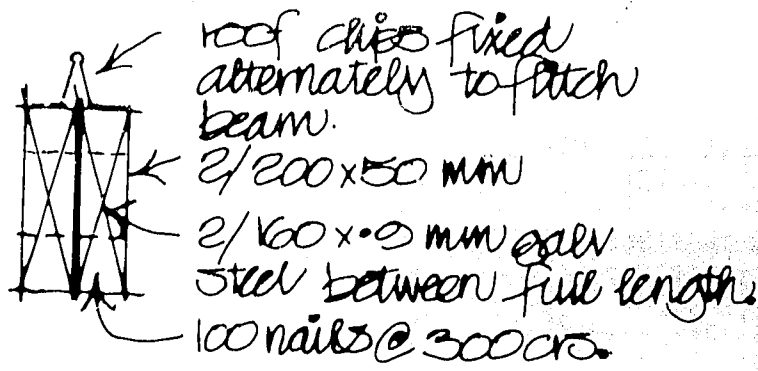 roof clips fixed
alternately to flitch
beam.
2/200x50 mm
2/160x.9 mm galv
steel between full length.
100 nails @ 300 crs.